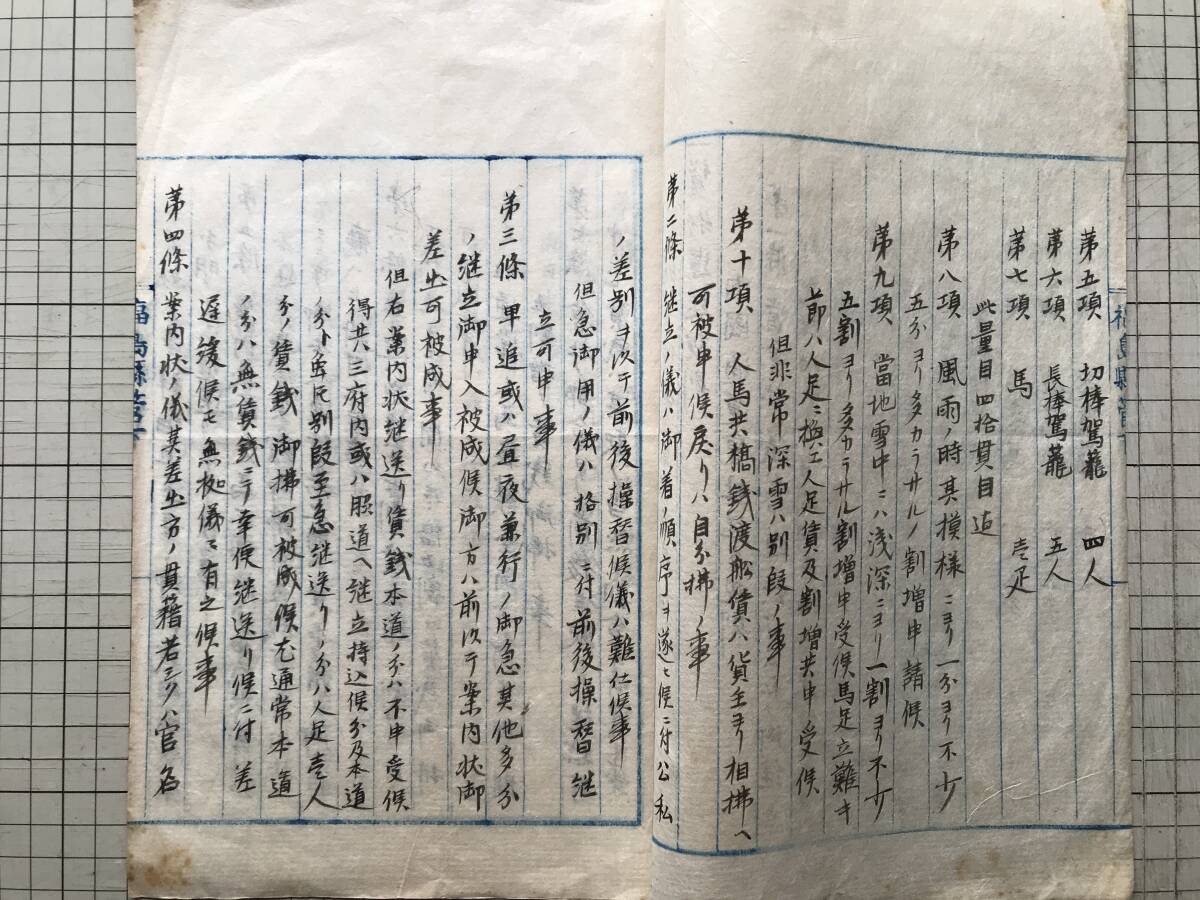 第五項 切棒駕籠 四人
第六項 長棒駕籠 五人
第七項 馬 壱疋
此量目四拾貫目迠
第八項 風雨ノ時其摸様ニヨリ一分ヨリ不少
五分ヨリ多カラサルノ割増申請候
第九項 當地雪中ニハ浅深ニヨリ一割ヨリ不少
五割ヨリ多カラサル割増申受候馬足立難キ
節ハ人足ニ換工人足賃及割増共申受候
但非常深雪ハ別段ノ事
第十項 人馬共橋銭渡舩賃ハ貨主ヨリ相拂ヘ
可被申候戻リハ自分拂ノ事
第二條 継立ノ儀ハ御着ノ順序ヲ逐ヒ候ニ付公私
ノ差別ヲ以テ前後操替候儀ハ難仕候事
但急御用ノ儀ハ格別ニ付前後操替継
立可申事
第三條 早追或ハ昼夜兼行ノ御急其他多分
ノ継立御申入被成候御方ハ前以テ案内状御
差出可被成事
但右案内状継送リ賃銭本道ノ分ハ不申受候
得共三府内或ハ脇道ヘ継立持込候分及本道
ノ分ト雖トモ別段至急継送リノ分ハ人足壱人
分ノ賃銭御拂可被成候尤通常本道
ノ分ハ無賃銭ニテ幸便継送リ候ニ付差
遅後候モ無拠儀ニ有之候事
第四條 案内状ノ儀其差出方ノ貫籍若シクハ官名
福島縣
福島縣